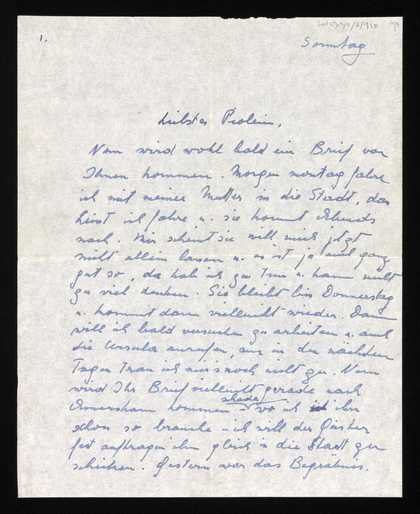 1.
Sonntag
Liebstes Piolein,
Nun wird wohl bald ein Brief von
Ihnen kommen. Morgen montag fahre
ich mit meiner Mutter in die Stadt, das
heist ich fahre u. sie kommt Abends
nach. Mir scheint sie will mich jetzt
nicht allein lassen u. es ist ja auch ganz
gut so, da hab ich zu Tun u. kann nicht
zu viel denken. Sie bleibt bis Donnerstag
u. kommt dann vielleicht wieder. Dann
will ich bald versuchen zu arbeiten u. auch
die Ursula anrufen, nur in den nächsten
Tagen trau ich mirs noch nicht zu. Nun
wird Ihr Brief vielleicht gerade nach
Amersham kommen schade, wo ich ihn
schon so brauche - ich will der
fest auftragen ihn gleich in die Stadt zu
schicken. Gestern war das Begräbnis.